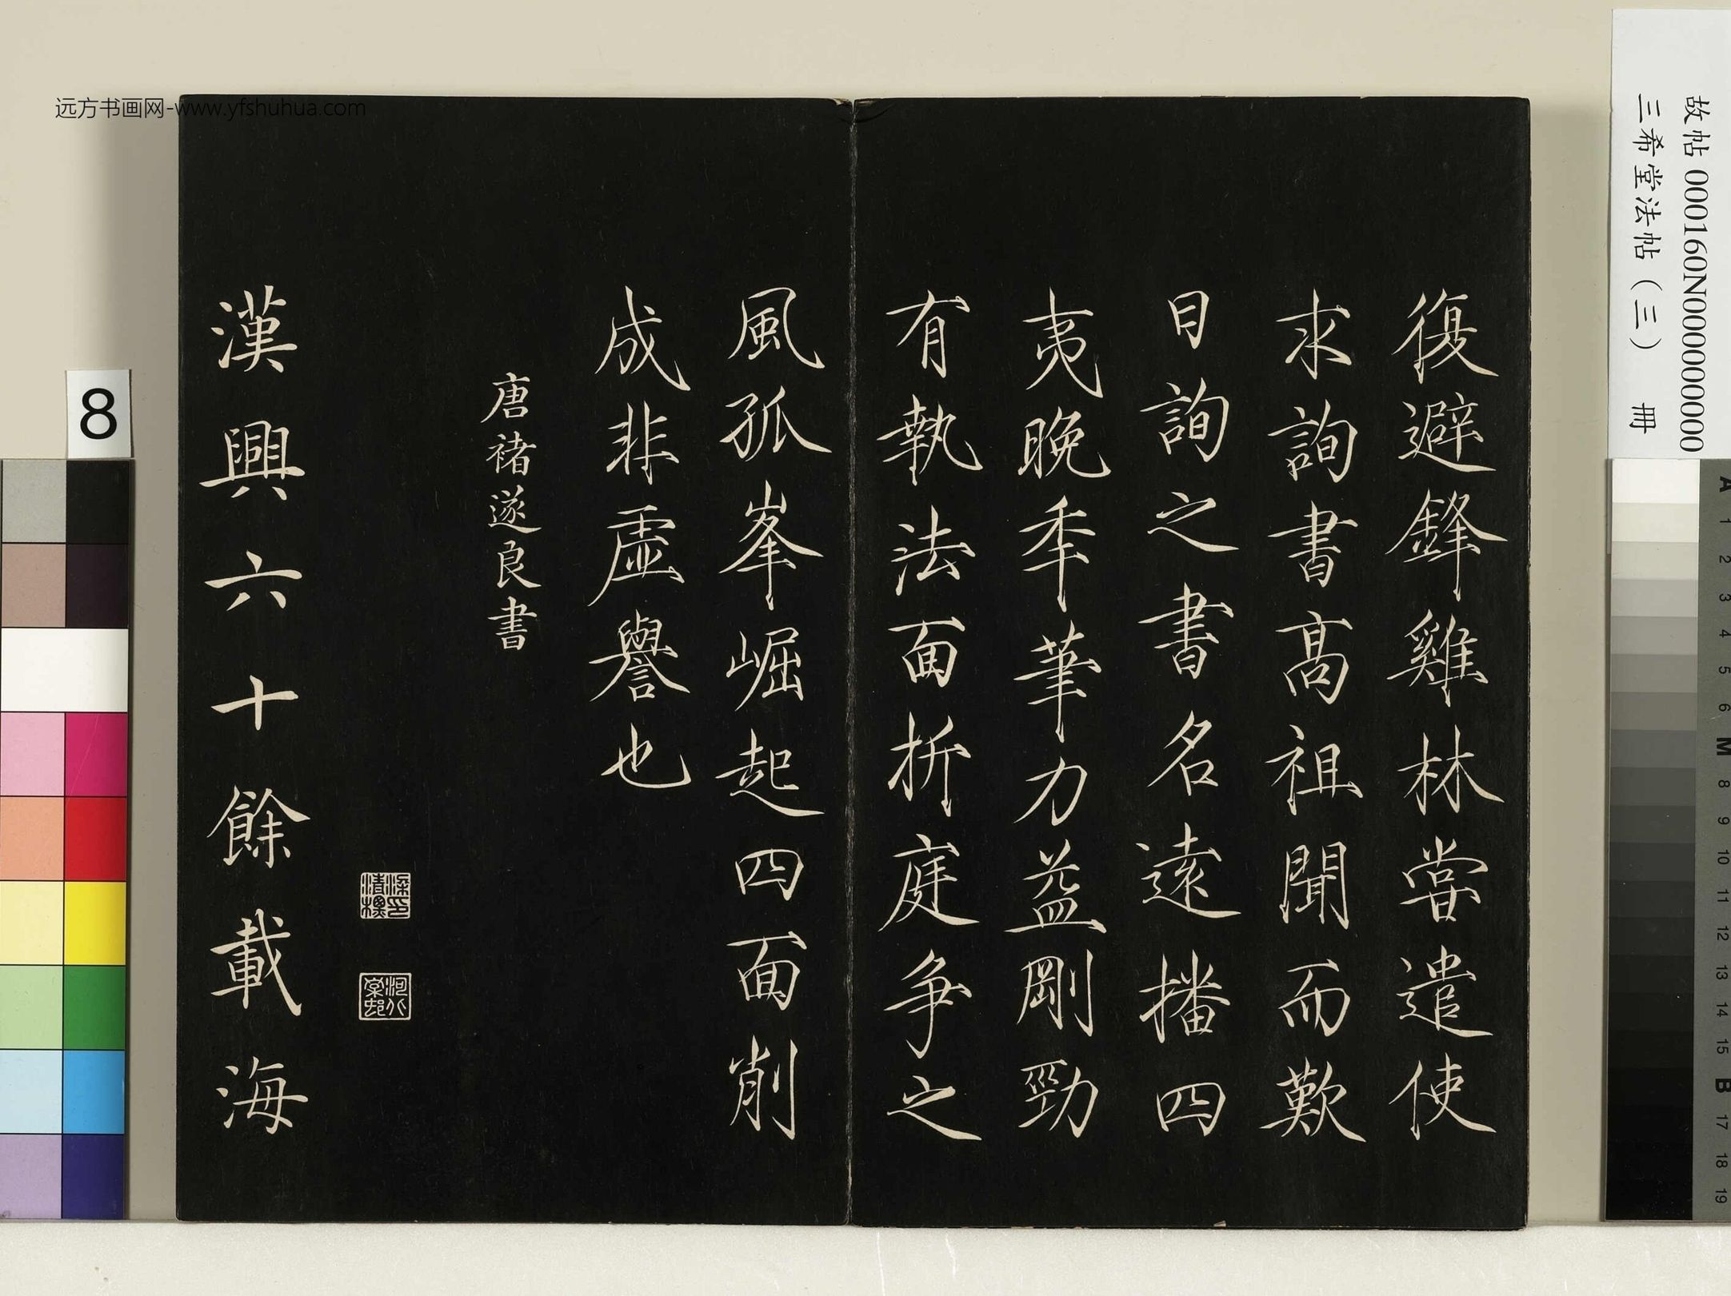 復避鋒雞林嘗遣使
求詢書高祖聞而歎
曰詢之書名遠播四
夷晚年筆力益剛勁
有執法面折庭争之
風孤峯崛起四面削
成非虛譽也
唐褚遂良書
漢興六十餘載海
远方书画网-www.yfshuhua.com
故帖 000160N000000000
三希堂法帖（三） 冊
8
A 1 2 3 4 5 6 M 8 9 10 11 12 13 14 15 B 17 18 19